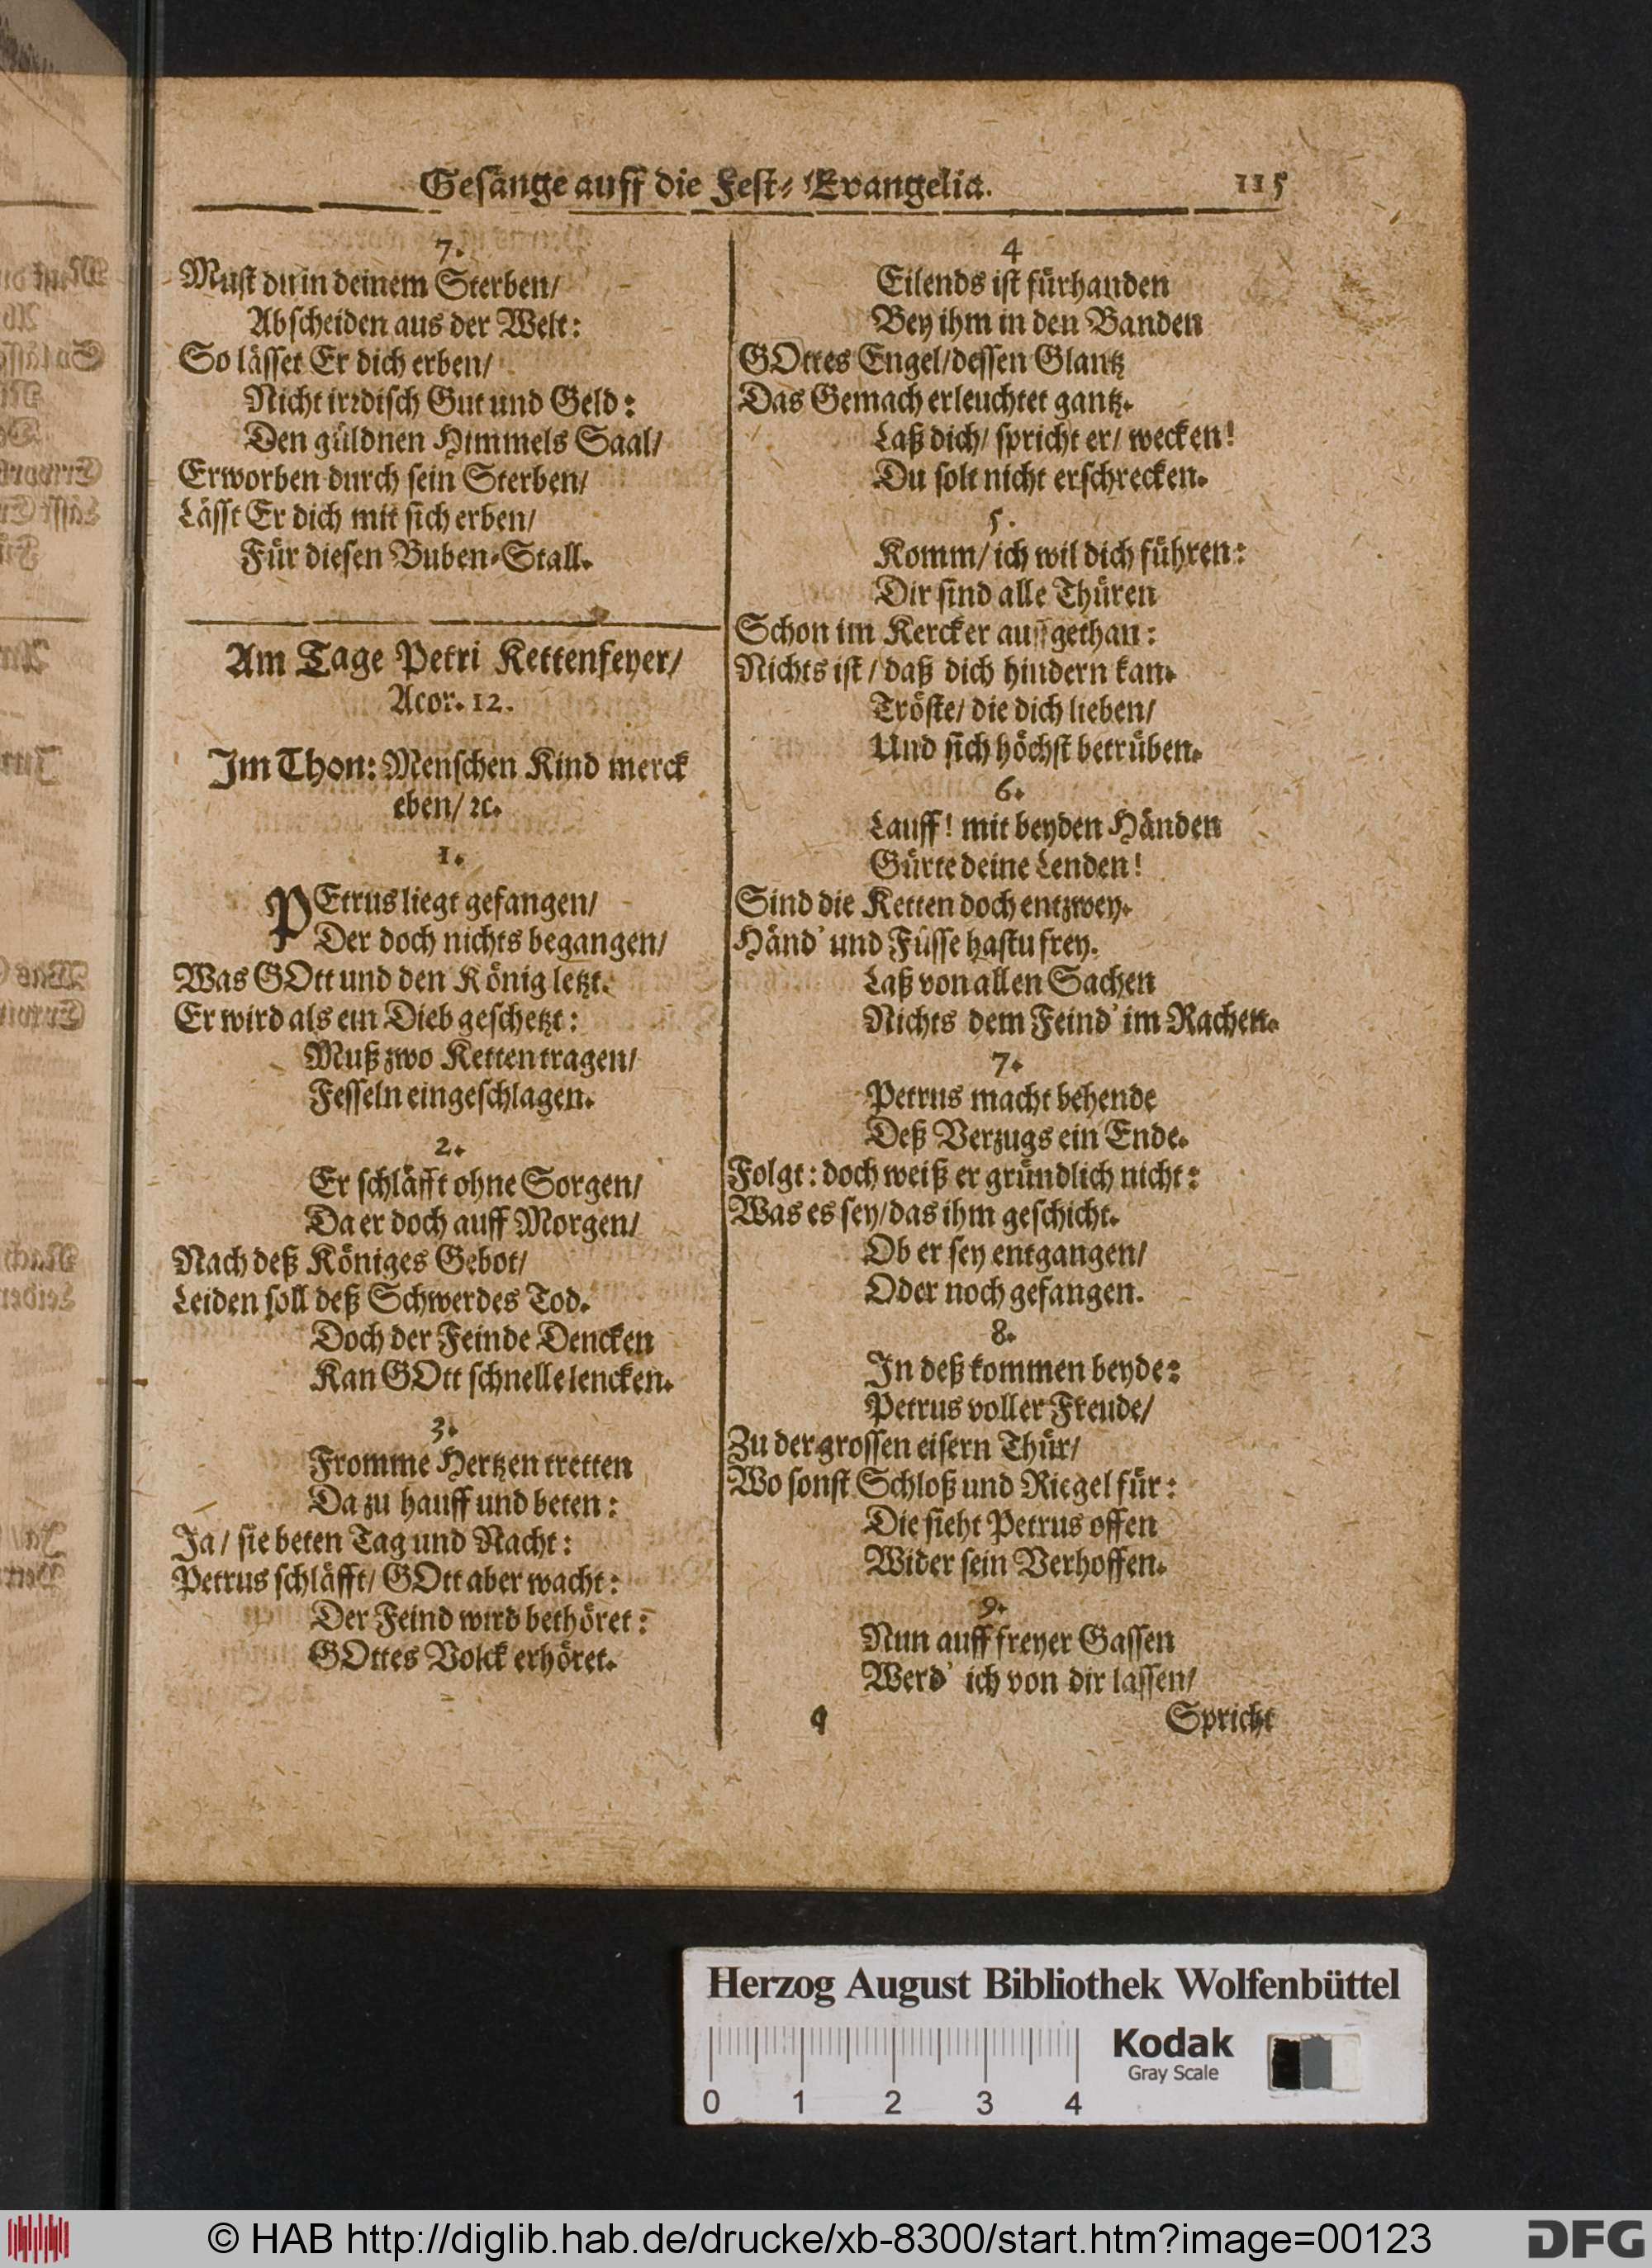 Gesänge auff die Fest-Evangelia. 115
7.
Must du in deinem Sterben/
Abscheiden aus der Welt:
So lässet Er dich erben/
Nicht irrdisch Gut und Geld:
Den güldnen Himmels Saal/
Erworben durch sein Sterben/
Lässt Er dich mit sich erben/
Für diesen Buben-Stall.
Am Tage Petri Kettenfeyer/
Actor. 12.
Im Thon: Menschen Kind merck
eben/ ꝛc.
1.
PEtrus liegt gefangen/
Der doch nichts begangen/
Was GOtt und den König letzt.
Er wird als ein Dieb geschetzt:
Muß zwo Ketten tragen/
Fesseln eingeschlagen.
2.
Er schläfft ohne Sorgen/
Da er doch auff Morgen/
Nach deß Königes Gebot/
Leiden soll deß Schwerdes Tod.
Doch der Feinde Dencken
Kan GOtt schnelle lencken.
3.
Fromme Hertzen tretten
Da zu hauff und beten:
Ja/ sie beten Tag und Nacht:
Petrus schläfft/ GOtt aber wacht:
Der Feind wird bethöret:
GOttes Volck erhöret.
4
Eilends ist fürhanden
Bey ihm in den Banden
GOttes Engel/ dessen Glantz
Das Gemach erleuchtet gantz.
Laß dich/ spricht er/ wecken!
Du solt nicht erschrecken.
5.
Komm/ ich wil dich führen:
Dir sind alle Thüren
Schon im Kercker auffgethan:
Nichts ist/ daß dich hindern kan.
Tröste/ die dich lieben/
Und sich höchst betrüben.
6.
Lauff! mit beyden Händen
Gürte deine Lenden!
Sind die Ketten doch entzwey.
Händ' und Füsse hastu frey.
Laß von allen Sachen
Nichts dem Feind' im Rachen.
7.
Petrus macht behende
Deß Verzugs ein Ende.
Folgt: doch weiß er gründlich nicht:
Was es sey/ das ihm geschicht.
Ob er sey entgangen/
Oder noch gefangen.
8.
In deß kommen beyde:
Petrus voller Freude/
Zu der grossen eisern Thür/
Wo sonst Schloß und Riegel für:
Die sieht Petrus offen
Wider sein Verhoffen.
9.
Nun auff freyer Gassen
Werd' ich von dir lassen/
q Spricht
Herzog August Bibliothek Wolfenbüttel
Kodak
Gray Scale
0 1 2 3 4
© HAB http://diglib.hab.de/drucke/xb-8300/start.htm?image=00123
DFG